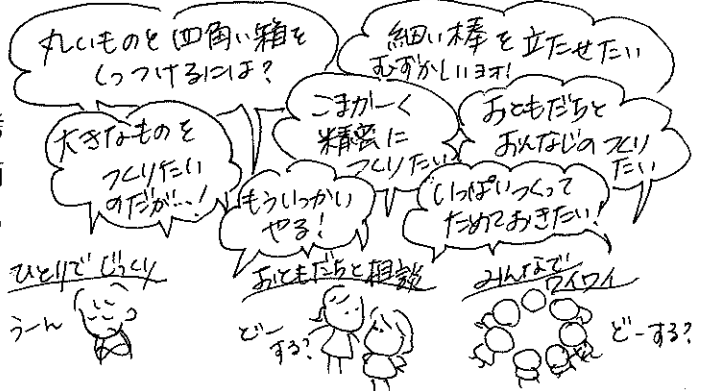 丸いものと四角い箱を
くっつけるには?
細い棒を立たせたい
むずかしいヨォ!
大きなものを
つくりたい
のだが…!
こまかーく
精密に
つくりたい
おともだちと
おんなじの つくり
たい
もういっかい
やる!
いっぱいつくって
ためておきたい!
ひとりでじっくり
うーん
おともだちと相談
どー
する?
みんなで
ワイワイ
どーする?